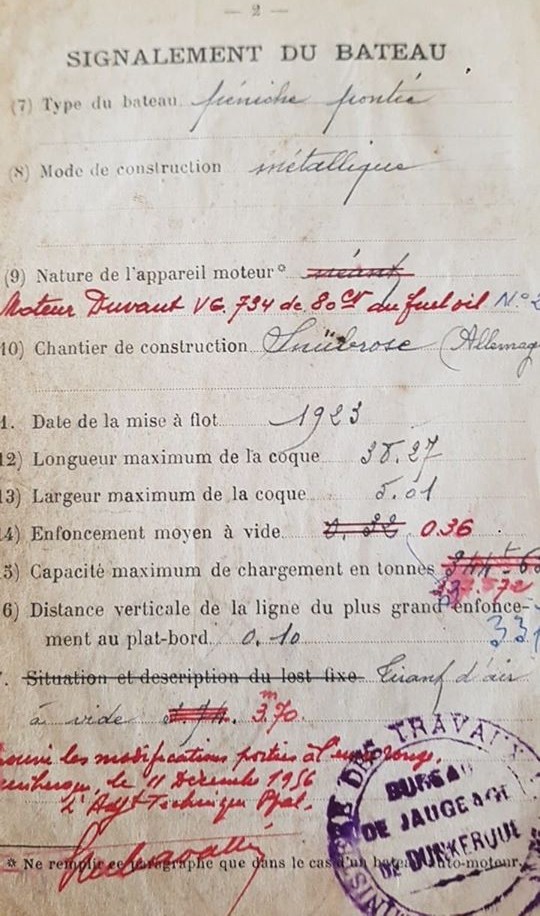 — 2 —
SIGNALEMENT DU BATEAU
(7) Type du bateau péniche pontée
(8) Mode de construction métallique
(9) Nature de l'appareil moteur° néant
Moteur Duvant VG. 734 de 80 CV au fuel oil N°2
10) Chantier de construction (Allemag
1. Date de la mise à flot 1923
12) Longueur maximum de la coque 38.27
13) Largeur maximum de la coque 5.01
4) Enfoncement moyen à vide 0.32 0.36
5) Capacité maximum de chargement en tonnes
6) Distance verticale de la ligne du plus grand enfonce-
ment au plat-bord 0.10 331
7. Situation et description du lest fixe Tirant d'air
à vide 3.70 m
les modifications portées à l'encre rouge.
le 11 Décembre 1956
L'Adjt Technique Ppal.
DES TRAVAUX
BUREAU
DE JAUGEAGE
DE DUNKERQUE
* Ne remplir ce paragraphe que dans le cas d'un bateau auto-moteur.